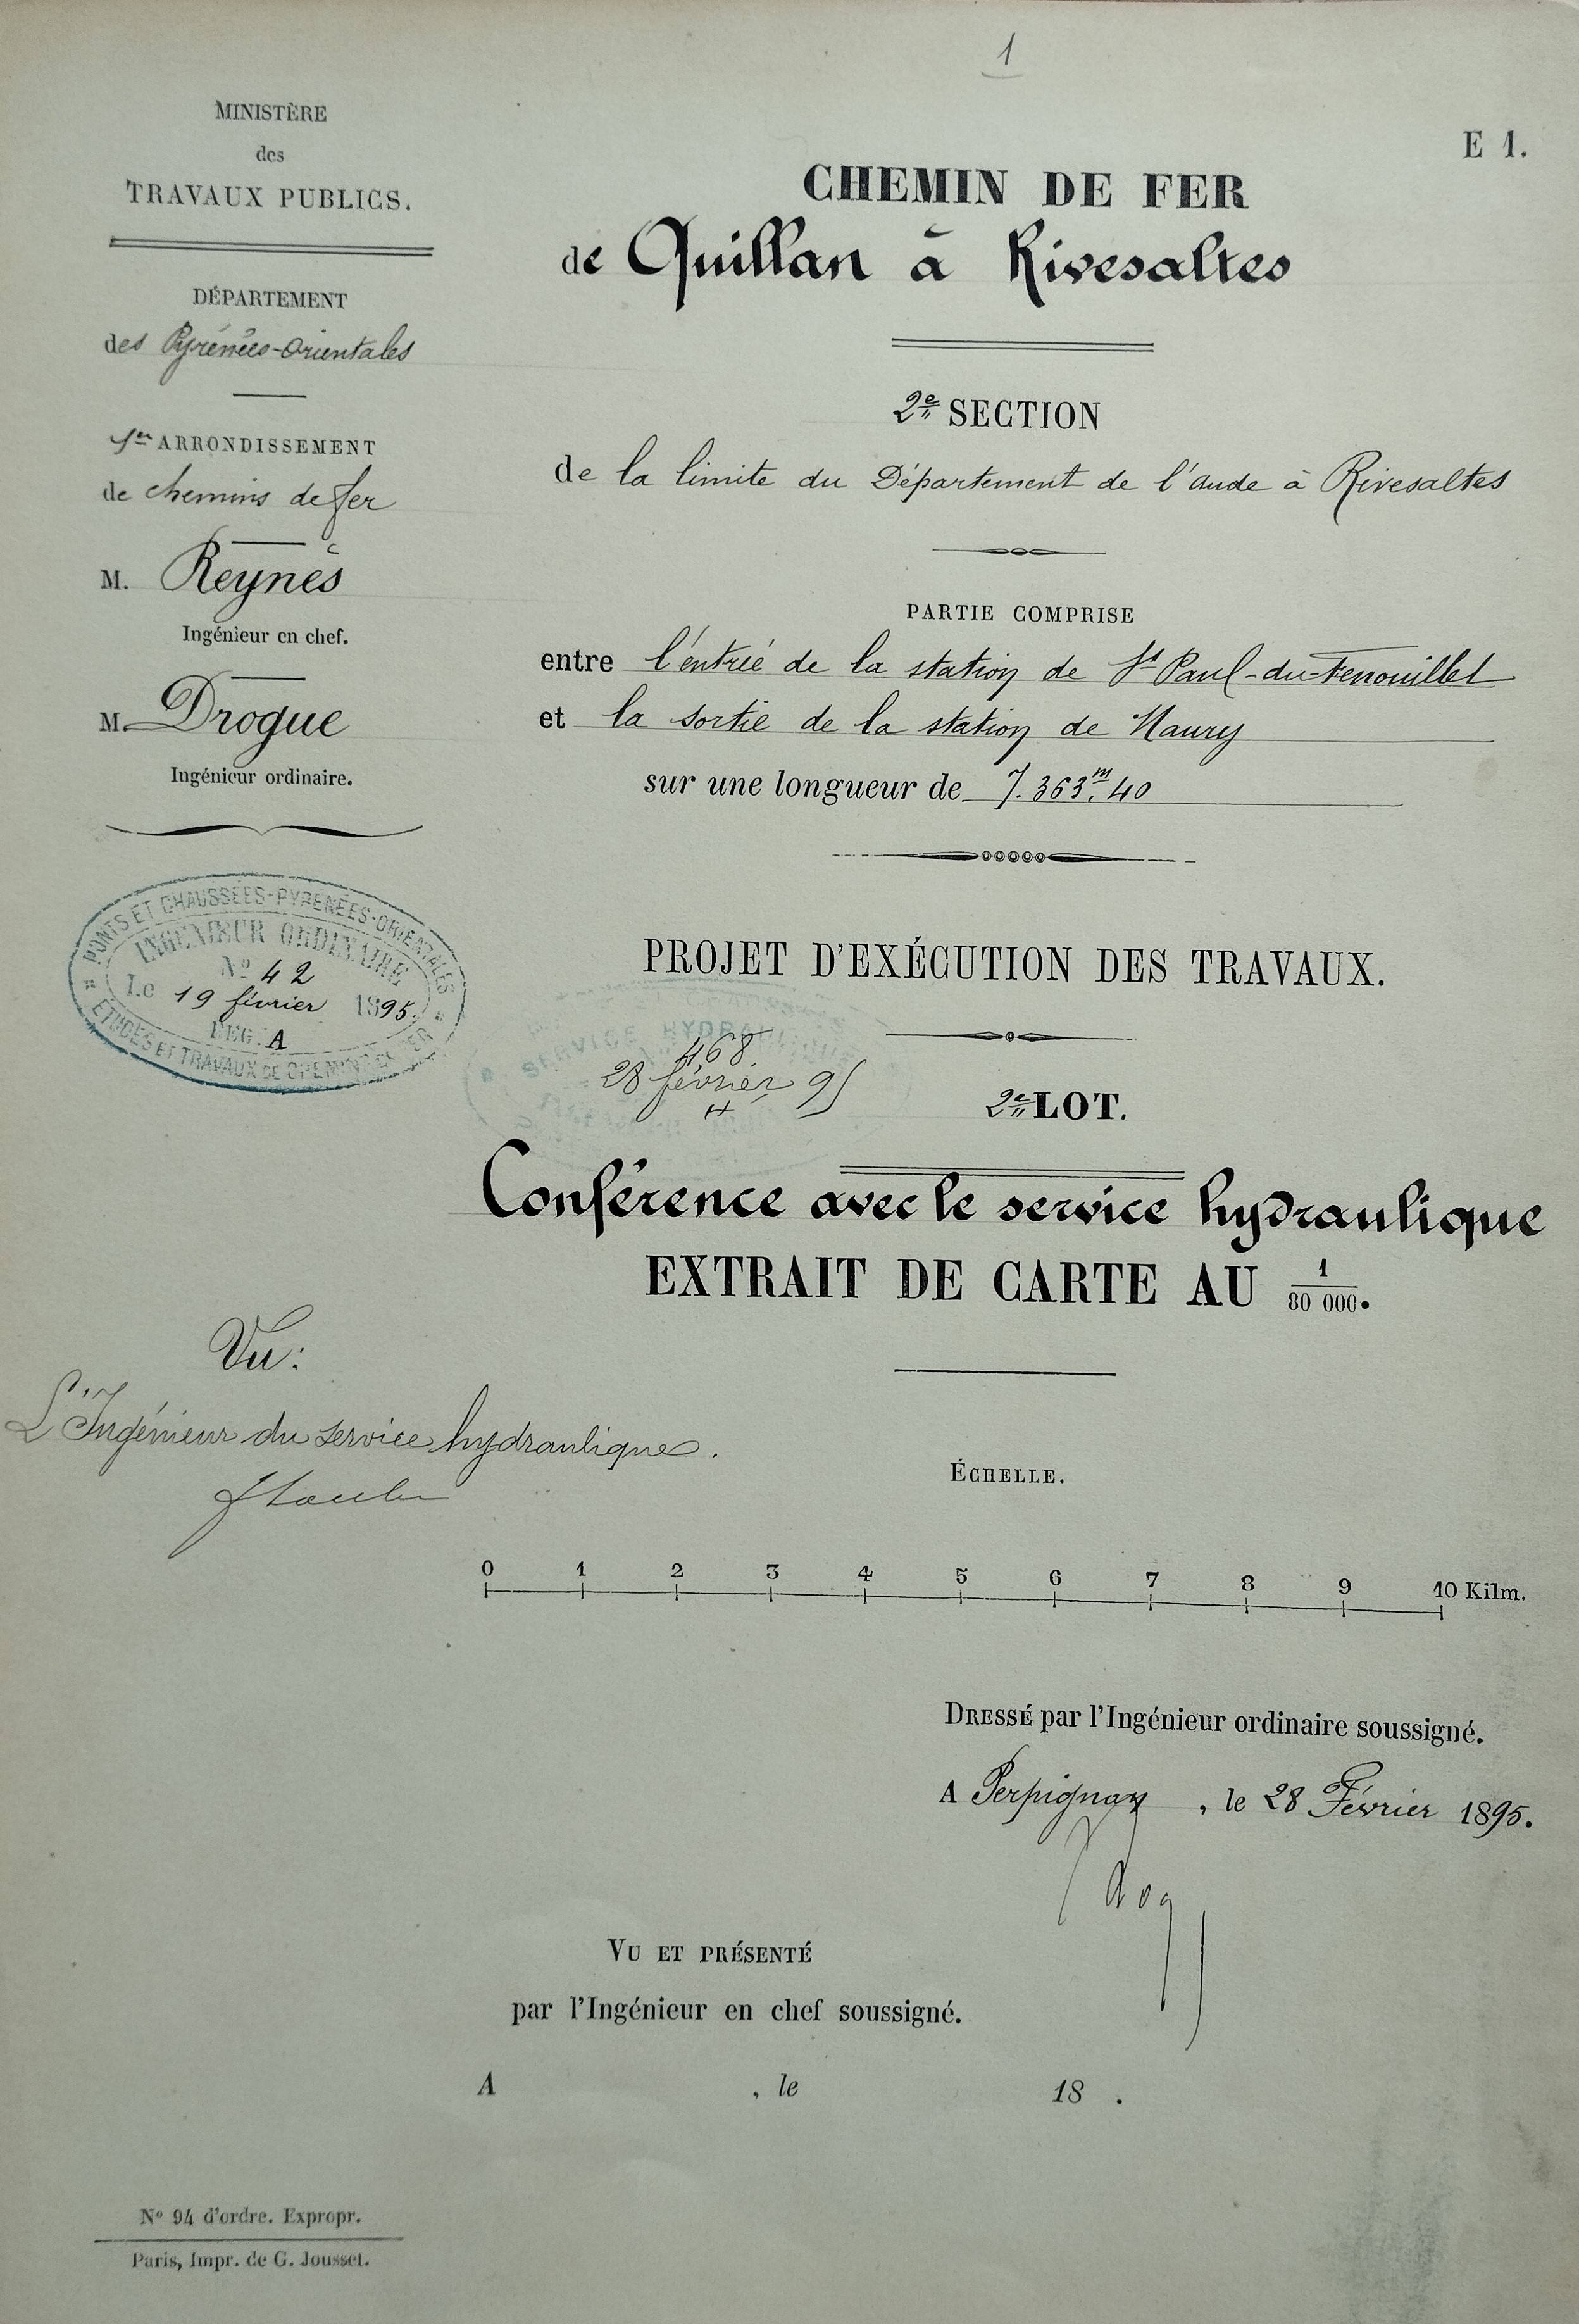 1
E 1.
MINISTÈRE
des
TRAVAUX PUBLICS.
DÉPARTEMENT
des Pyrénées-Orientales
1er ARRONDISSEMENT
de chemins de fer
M. Reynès
Ingénieur en chef.
M. Drogue
Ingénieur ordinaire.
PONTS ET CHAUSSÉES-PYRÉNÉES-ORIENTALES
INGÉNIEUR ORDINAIRE
No 42
Le 19 février 1895.
REG. A
ETUDES ET TRAVAUX DE CHEMINS DE FER
CHEMIN DE FER
de Quillan à Rivesaltes
2e SECTION
de la limite du Département de l'Aude à Rivesaltes
PARTIE COMPRISE
entre l'entrée de la station de St Paul-du-Fenouillet
et la sortie de la station de Maury
sur une longueur de 7.363m.40
PROJET D'EXÉCUTION DES TRAVAUX.
SERVICE HYDRAULIQUE
468
28 février 95
2e LOT.
Conférence avec le service hydraulique
EXTRAIT DE CARTE AU 1/80 000.
Vu:
L'Ingénieur du service hydraulique.
ÉCHELLE.
0 1 2 3 4 5 6 7 8 9 10 Kilm.
DRESSÉ par l'Ingénieur ordinaire soussigné.
A Perpignan, le 28 Février 1895.
VU ET PRÉSENTÉ
par l'Ingénieur en chef soussigné.
A , le 18 .
No 94 d'ordre. Expropr.
Paris, Impr. de G. Jousset.